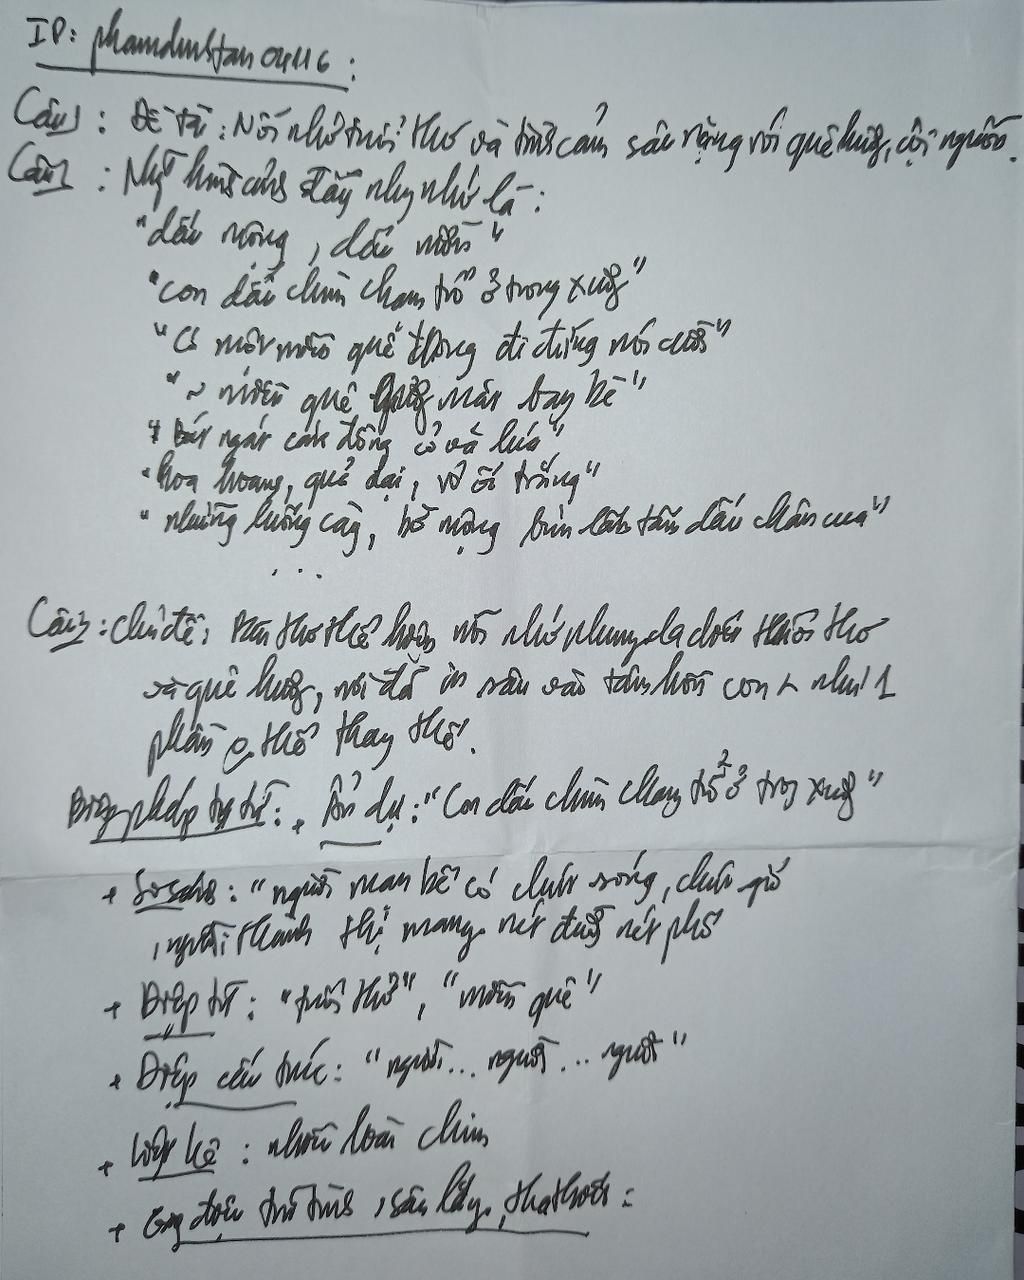 IP: phamdinhtan04116:
Câu1: Đề tài: Nỗi nhớ tuổi thơ và tình cảm sâu nặng với quê hương, cội nguồn.
Câu2: Những hình ảnh đầy như là:
"dấu ruộng, dấu vườn"
"con dấu chìm chạm trổ ở trong xương"
"Có một miền quê trong đi đứng nói cười"
"~ miền quê mây bay bể"
"Bát ngát cánh đồng cỏ và lúa"
"hoa hoang, quả dại, vỏ ốc trắng"
"những luống cày, bờ ruộng bùn lấm tấm dấu chân cua"
...
Câu3: Chủ đề: Bài thơ thể hiện nỗi nhớ nhung da diết tuổi thơ
và quê hương, nơi đã in sâu vào tâm hồn con như 1
phần thể thay thế.
Biện pháp tu từ: + Ẩn dụ: "Con dấu chìm chạm trổ ở trong xương"
+ So sánh: "người man bể có chút sóng, chút gió
, người thành thị mang nét đường nét phố
+ Điệp từ: "tuổi thơ", "miền quê"
+ Điệp cấu trúc: "người... người... người"
+ Liệt kê: nhiều loài chim
+ Giọng điệu trữ tình, sâu lắng, tha thiết: